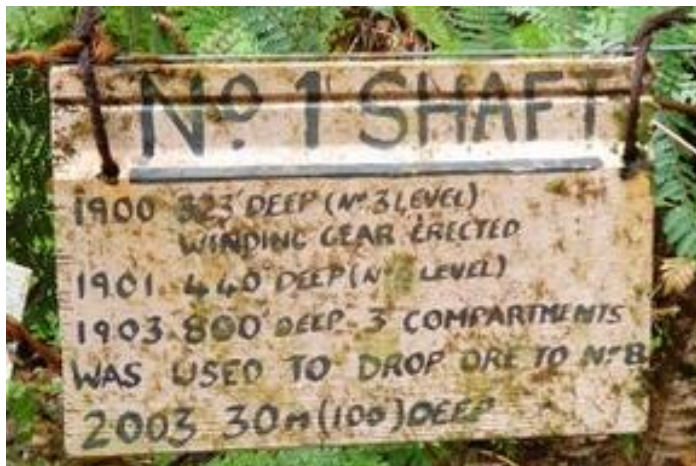 No 1 SHAFT
1900 323' DEEP (No 3 LEVEL)
WINDING GEAR ERECTED
1901 440' DEEP (No LEVEL)
1903 800' DEEP 3 COMPARTMENTS
WAS USED TO DROP ORE TO No 8
2003 30m (100') DEEP